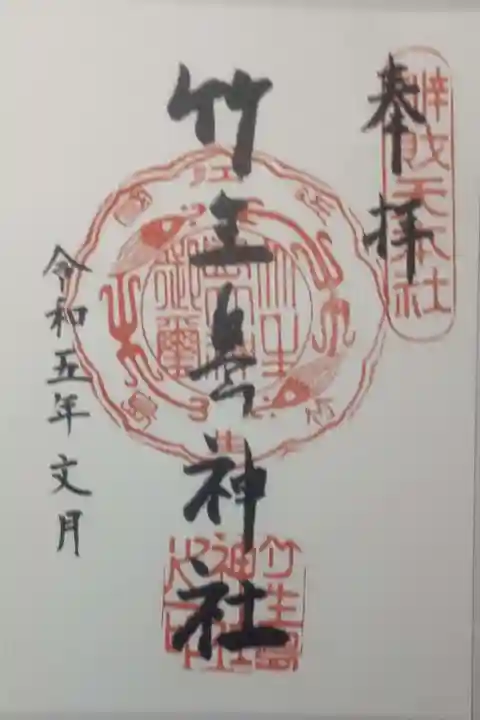 奉拝
辨財天本社
竹生島神社
竹生島神社之印
令和五年文月